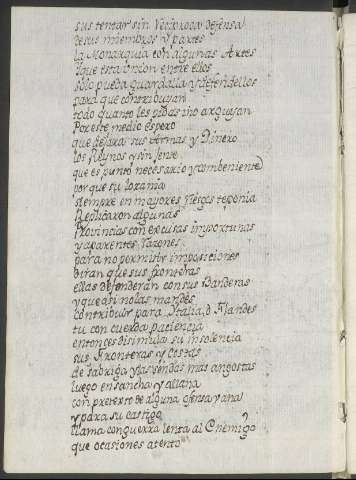 sustentar sin reciproca defensa
de sus miembros y partes
la Monarquia con algunas Artes
que esta union entre ellos
solo pueda guardalla y defendellos
para que contribuyan
todo quanto les pidas i no arguyan
Por este medio espero
que dejara sus Armas y Dinero
los Reynos y sin
que es punto necesario y combeniente
por que su lozania
siempre en mayores riesgos te ponia
Replicaron algunas
Provincias con excusas importunas
y aparentes razones
para no permitir imposiciones
diran que sus fronteras
ellas defenderan con sus Banderas
y que asi no las mandes
contribuir para Italia, o Flandes
tu con cuerda paciencia
entonces disimula su insolencia
sus Fronteras y costas
desabriga y las sendas mas angostas
luego ensancha y allana
con pretexto de alguna ofensa vana
y para su castigo
llama con guerra lenta al Enemigo
que ocasiones atento